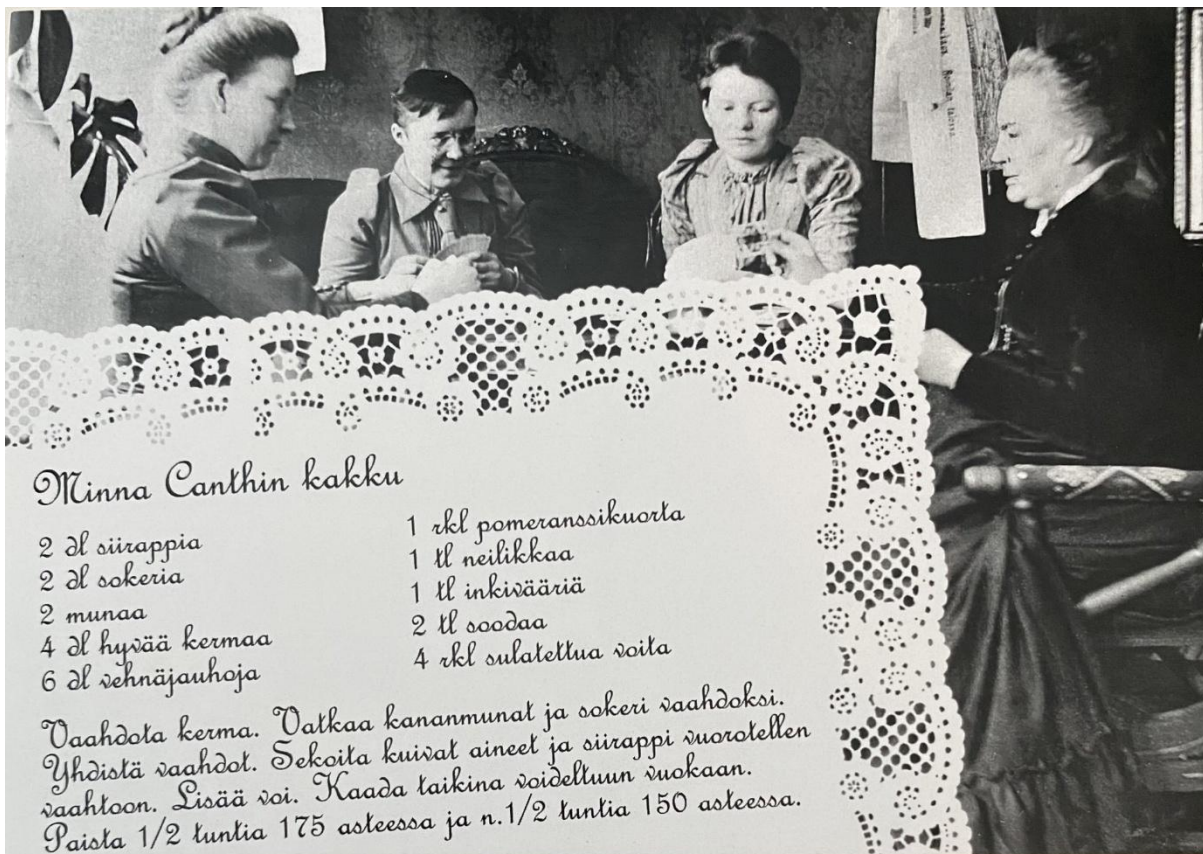 Minna Canthin kakku
2 dl siirappia
2 dl sokeria
2 munaa
4 dl hyvää kermaa
6 dl vehnäjauhoja
1 rkl pomeranssikuorta
1 tl neilikkaa
1 tl inkivääriä
2 tl soodaa
4 rkl sulatettua voita
Vaahdota kerma. Vatkaa kananmunat ja sokeri vaahdoksi.
Yhdistä vaahdot. Sekoita kuivat aineet ja siirappi vuorotellen
vaahtoon. Lisää voi. Kaada taikina voideltuun vuokaan.
Paista 1/2 tuntia 175 asteessa ja n.1/2 tuntia 150 asteessa.